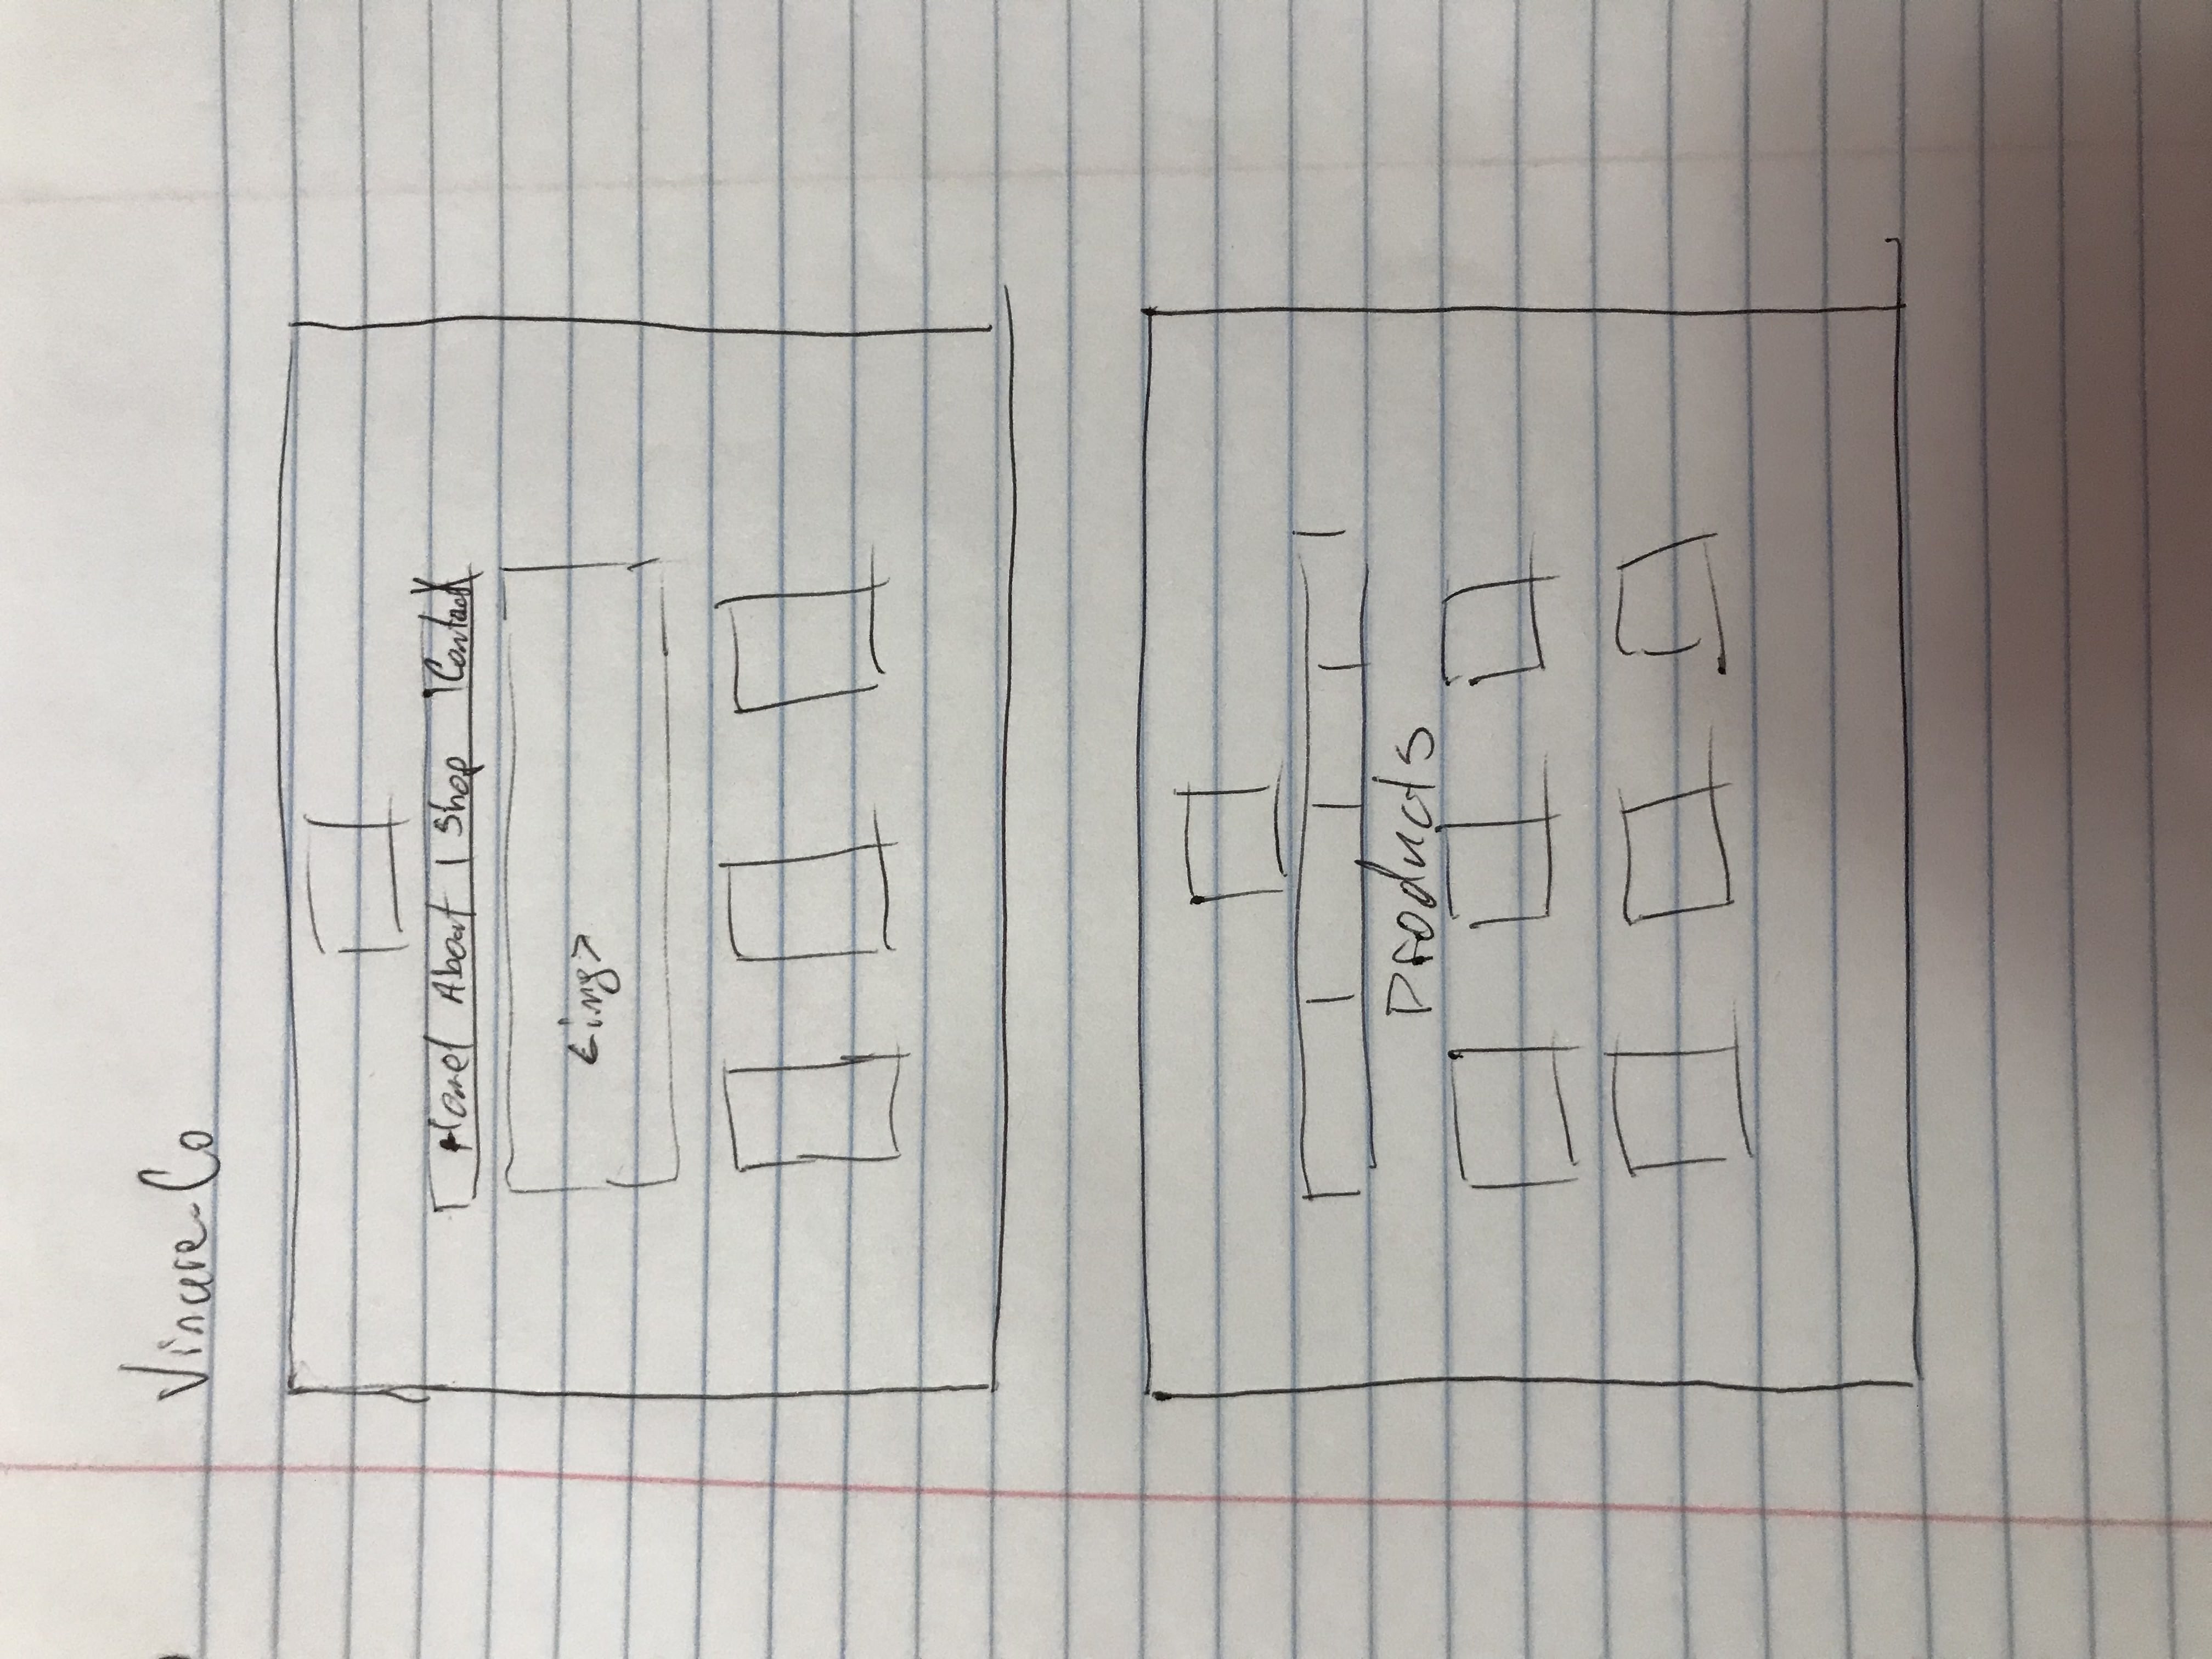 Vincere-Co
Home | About | Shop | Contact
<img>
Products